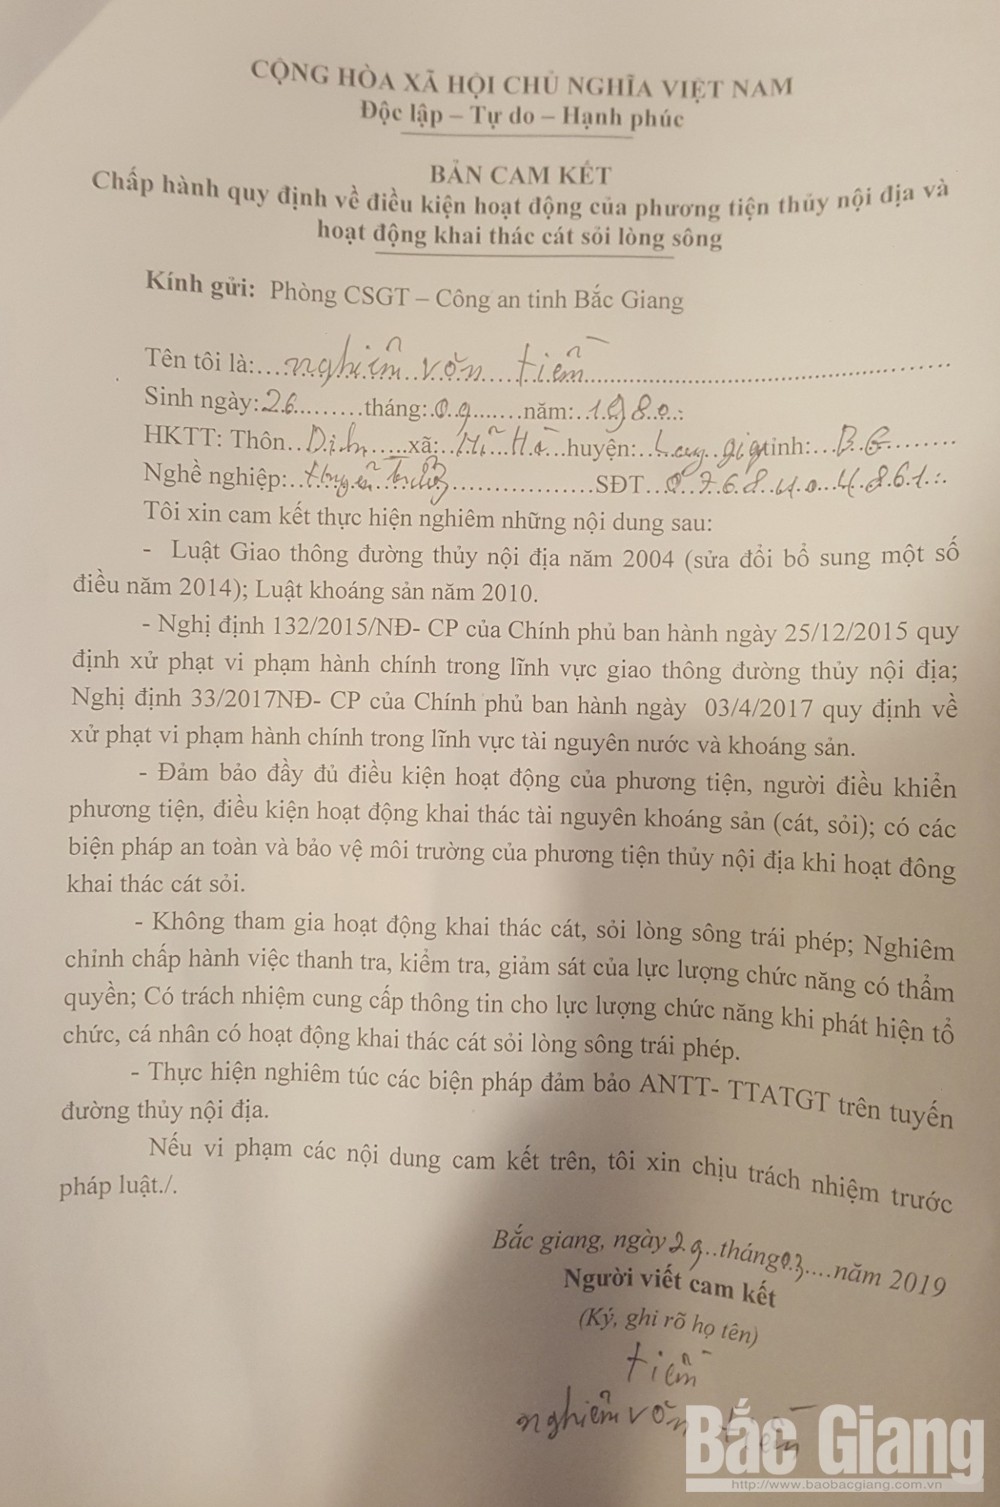 CỘNG HÒA XÃ HỘI CHỦ NGHĨA VIỆT NAM
Độc lập – Tự do – Hạnh phúc
BẢN CAM KẾT
Chấp hành quy định về điều kiện hoạt động của phương tiện thủy nội địa và
hoạt động khai thác cát sỏi lòng sông
Kính gửi: Phòng CSGT – Công an tỉnh Bắc Giang
Tên tôi là: nghiêm văn tiến
Sinh ngày: 26 tháng: 09 năm: 1980
HKTT: Thôn xã: Hà huyện: Lạng giang tỉnh: BG
Nghề nghiệp: SĐT 0768404861
Tôi xin cam kết thực hiện nghiêm những nội dung sau:
- Luật Giao thông đường thủy nội địa năm 2004 (sửa đổi bổ sung một số
điều năm 2014); Luật khoáng sản năm 2010.
- Nghị định 132/2015/NĐ- CP của Chính phủ ban hành ngày 25/12/2015 quy
định xử phạt vi phạm hành chính trong lĩnh vực giao thông đường thủy nội địa;
Nghị định 33/2017NĐ- CP của Chính phủ ban hành ngày 03/4/2017 quy định về
xử phạt vi phạm hành chính trong lĩnh vực tài nguyên nước và khoáng sản.
- Đảm bảo đầy đủ điều kiện hoạt động của phương tiện, người điều khiển
phương tiện, điều kiện hoạt động khai thác tài nguyên khoáng sản (cát, sỏi); có các
biện pháp an toàn và bảo vệ môi trường của phương tiện thủy nội địa khi hoạt đông
khai thác cát sỏi.
- Không tham gia hoạt động khai thác cát, sỏi lòng sông trái phép; Nghiêm
chỉnh chấp hành việc thanh tra, kiểm tra, giảm sát của lực lượng chức năng có thẩm
quyền; Có trách nhiệm cung cấp thông tin cho lực lượng chức năng khi phát hiện tổ
chức, cá nhân có hoạt động khai thác cát sỏi lòng sông trái phép.
- Thực hiện nghiêm túc các biện pháp đảm bảo ANTT- TTATGT trên tuyến
đường thủy nội địa.
Nếu vi phạm các nội dung cam kết trên, tôi xin chịu trách nhiệm trước
pháp luật./.
Bắc giang, ngày 29 tháng 03 năm 2019
Người viết cam kết
(Ký, ghi rõ họ tên)
tiến
nghiêm văn tiến
Bắc Giang
http://www.baobacgiang.com.vn